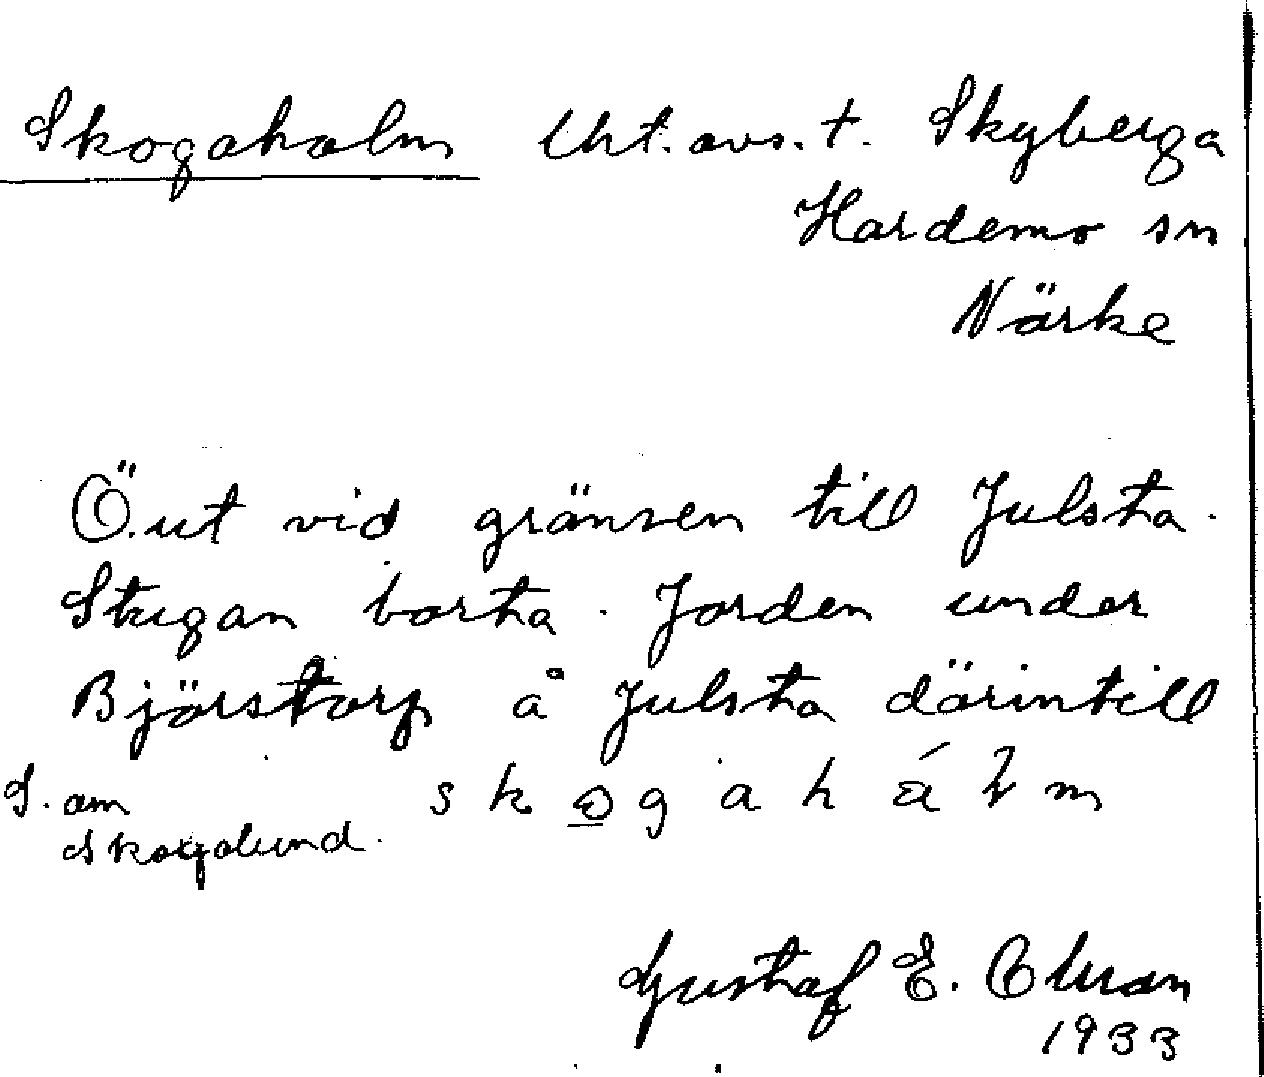 Skogaholm Uht. avs. t. Skyberga
Hardemo sn
Närke
Ö. ut vid gränsen till Julsta.
Stugan borta. Jorden under
Björstorp å Julsta därintill
S. om skogahálm
skogalund.
Gustaf E.
1933